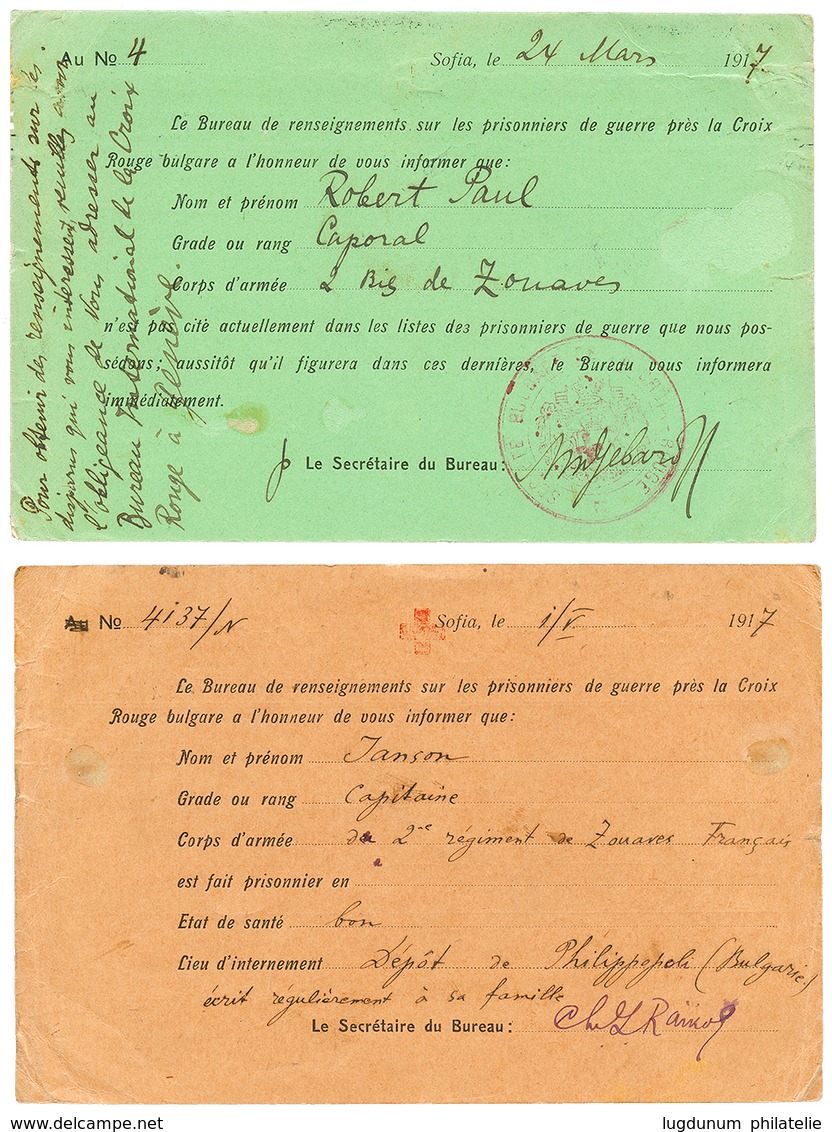 Au No 4
Sofia, le 24 Mars 1917.
Le Bureau de renseignements sur les prisonniers de guerre près la Croix
Rouge bulgare a l'honneur de vous informer que:
Nom et prénom Robert Paul
Grade ou rang Caporal
Corps d'armée 2 Bis de Zouaves
n'est pas cité actuellement dans les listes des prisonniers de guerre que nous pos-
sédons; aussitôt qu'il figurera dans ces dernières, le Bureau vous informera
immédiatement.
Le Secrétaire du Bureau:
Pour obtenir des renseignements sur les
disparus qui vous intéressent, veuillez avoir
l'obligeance de vous adresser au
Bureau International de la Croix
Rouge à Genève.
Au No 4137/N
Sofia, le 1/V 1917
Le Bureau de renseignements sur les prisonniers de guerre près la Croix
Rouge bulgare a l'honneur de vous informer que:
Nom et prénom Janson
Grade ou rang Capitaine
Corps d'armée du 2me régiment de Zouaves Français
est fait prisonnier en
Etat de santé bon
Lieu d'internement Dépôt de Philippopoli (Bulgarie)
écrit régulièrement à sa famille
Le Secrétaire du Bureau:
lugdunum philatelie
www.delcampe.net